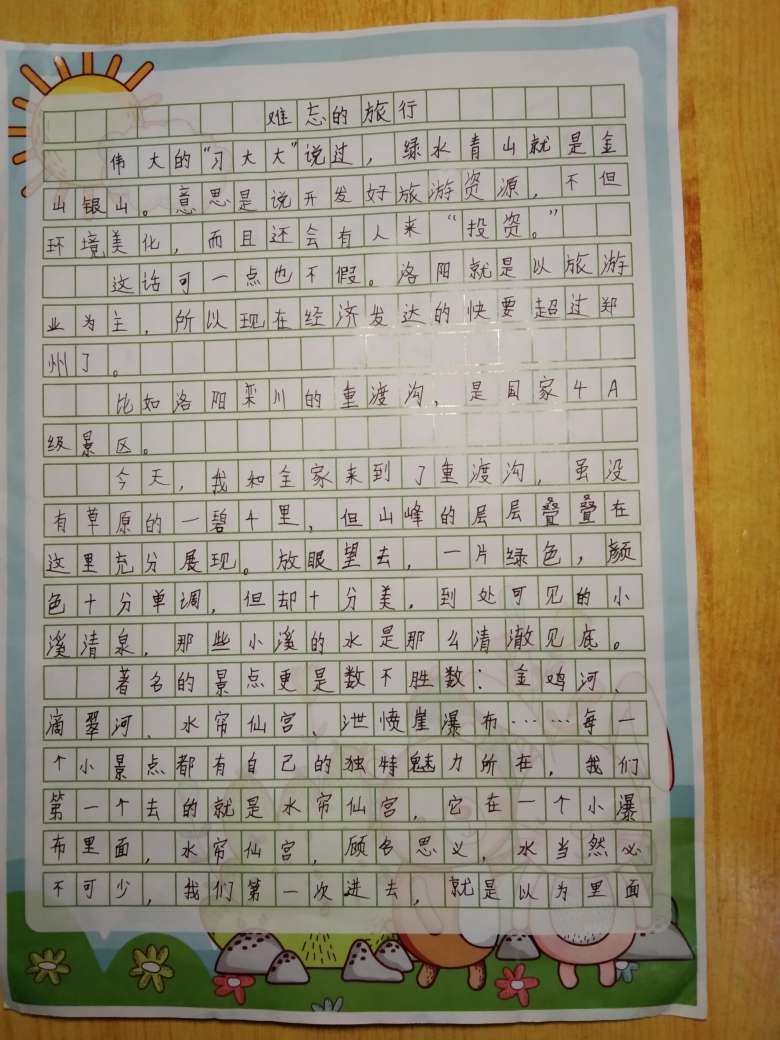 难忘的旅行
伟大的“习大大”说过，绿水青山就是金
山银山。意思是说开发好旅游资源，不但
环境美化，而且还会有人来“投资。”
这话可一点也不假。洛阳就是以旅游
业为主，所以现在经济发达的快要超过郑
州了。
比如洛阳栾川的重渡沟，是国家4A
级景区。
今天，我和全家来到了重渡沟，虽没
有草原的一碧千里，但山峰的层层叠叠在
这里充分展现。放眼望去，一片绿色，颜
色十分单调，但却十分美，到处可见的小
溪清泉，那些小溪的水是那么清澈见底。
著名的景点更是数不胜数：金鸡河、
滴翠河、水帘仙宫、泄愤崖瀑布……每一
个小景点都有自己的独特魅力所在，我们
第一个去的就是水帘仙宫，它在一个小瀑
布里面，水帘仙宫，顾名思义，水当然必
不可少，我们第一次进去，就是以为里面